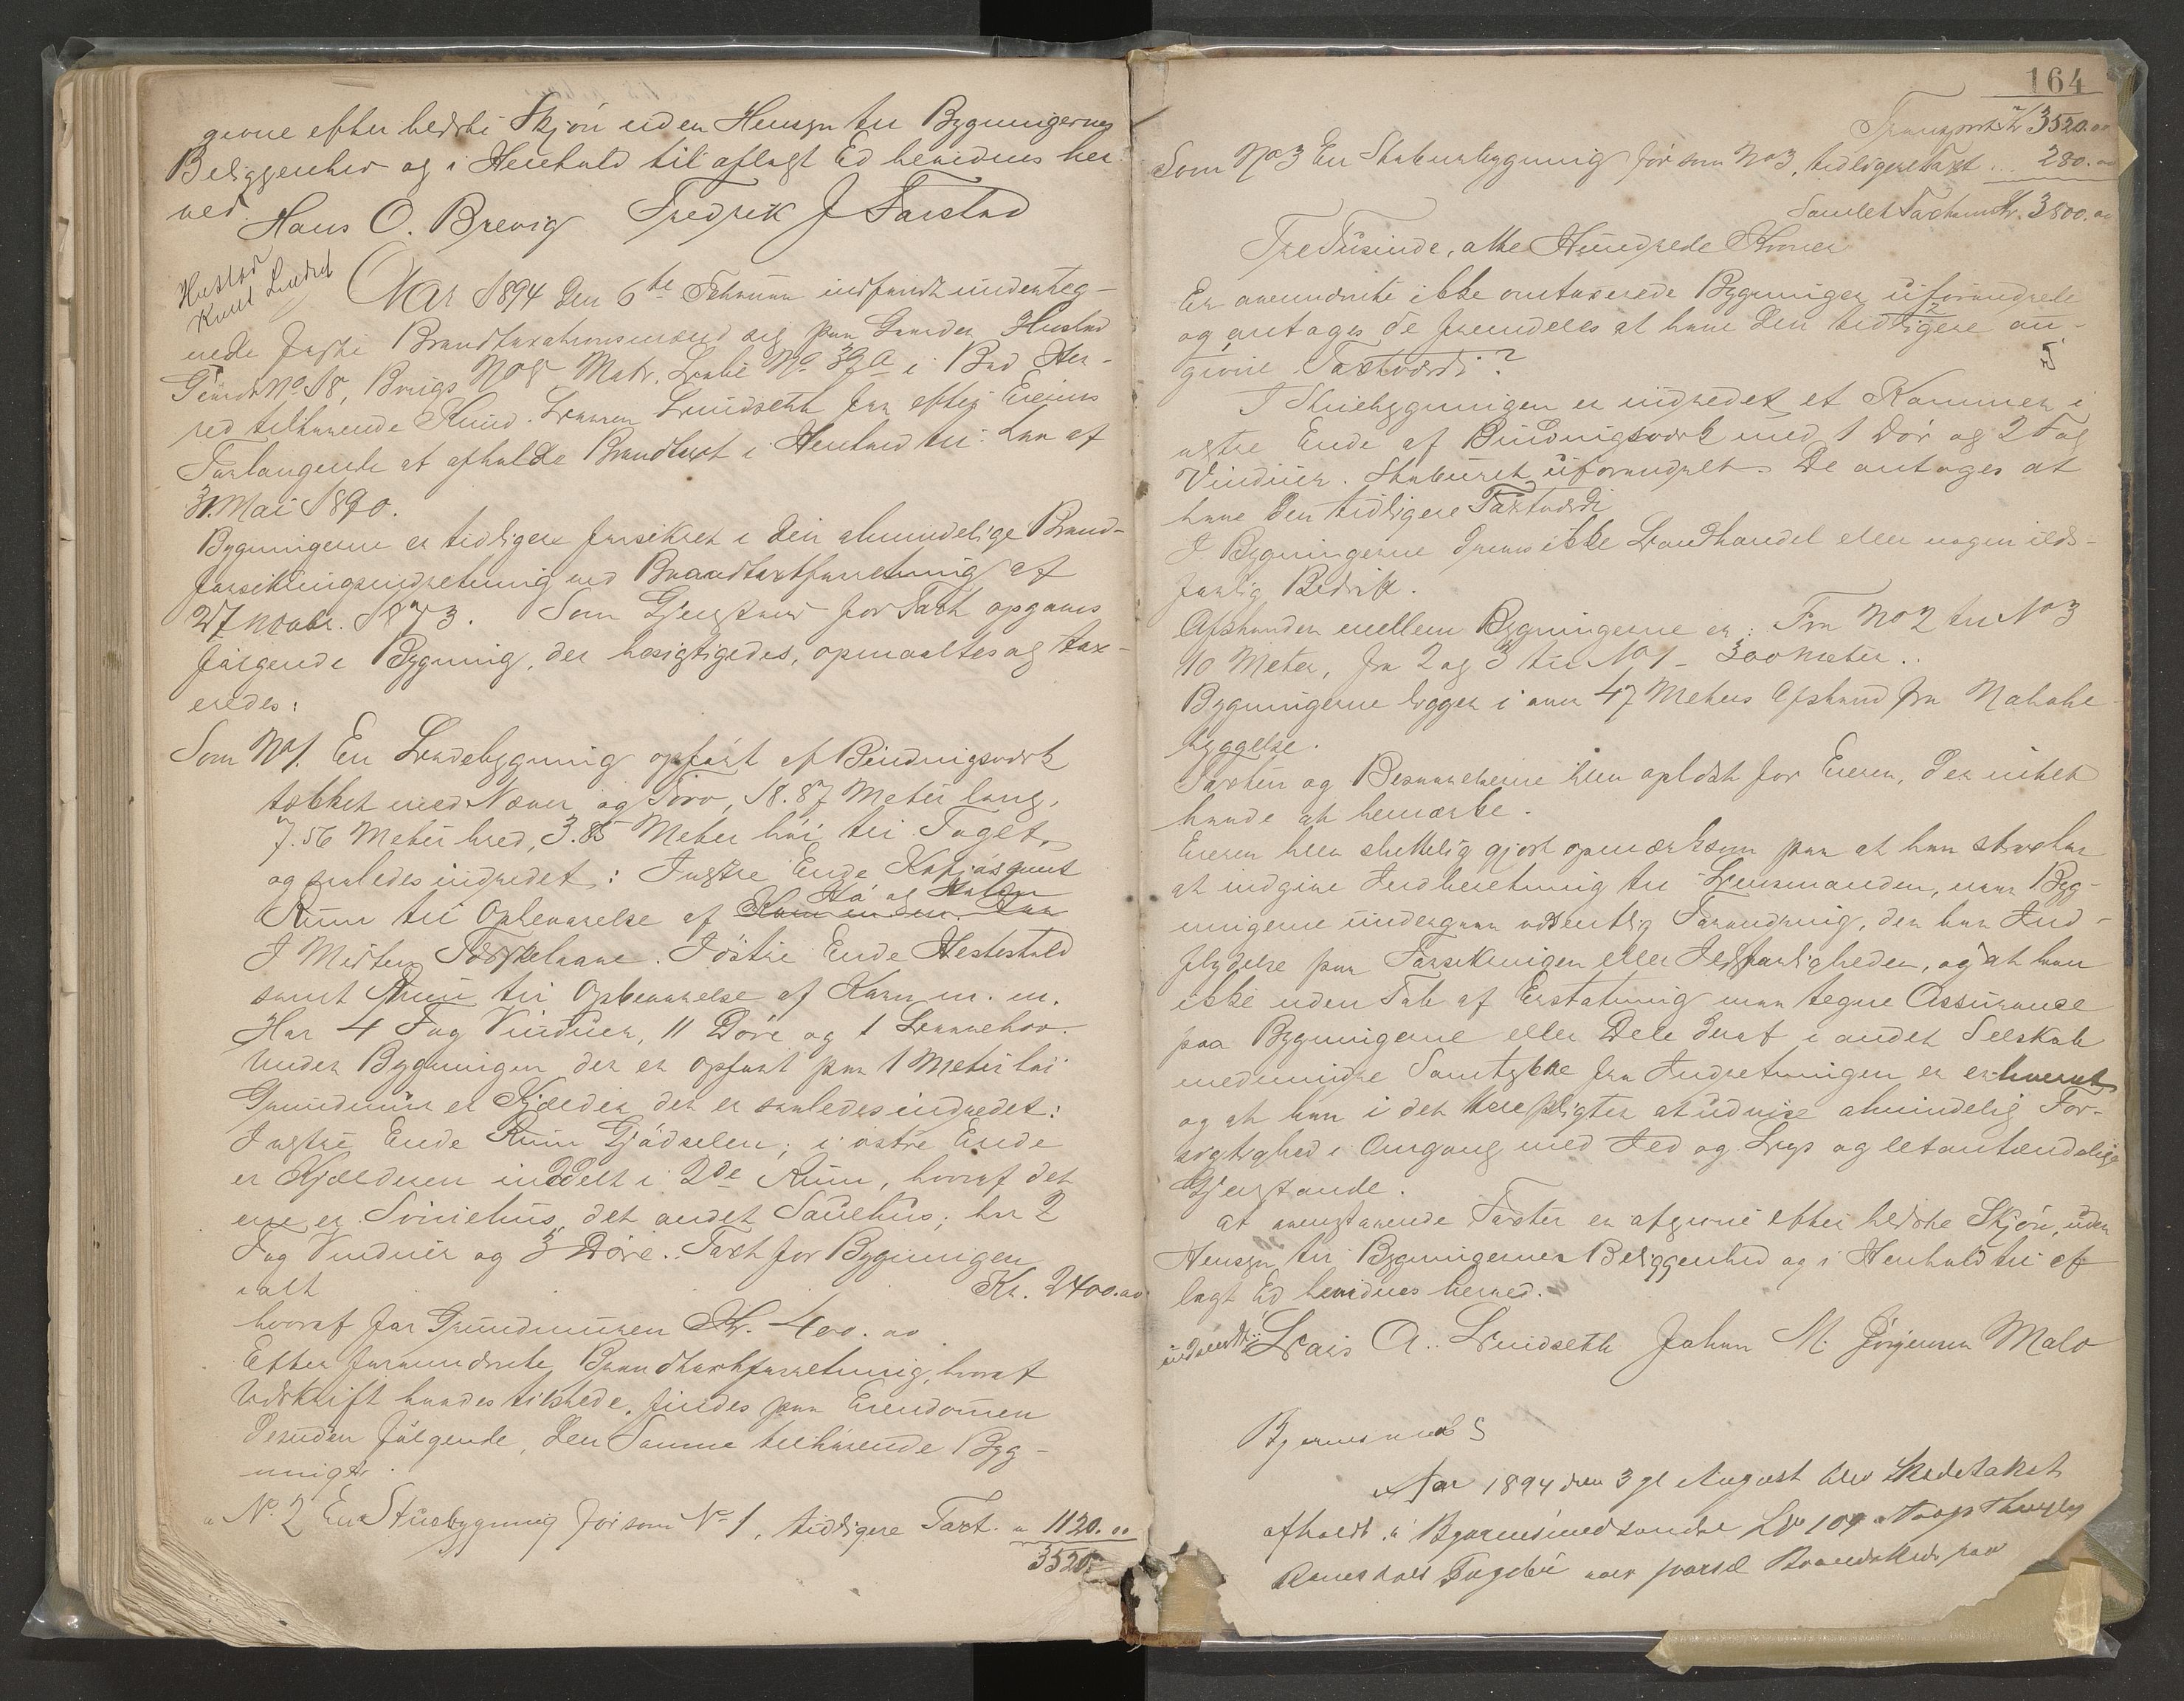 givne efter bedste Skjøn uden Hensyn til Bygningernes
Beliggenhed og i Henhold til aflagt Ed bevidnes her
ved.
Hans O. Brevig Fredrik J Farstad
Hustad
Knud Lindset
Aar 1894 den 6te Februar indfandt underteg-
nede faste Brandtaxationsmænd sig paa Gaarden Hustad
Gaards No 18, Brugs No 8 Matr. Løbe No 39a i Bud Her-
red tilhørende Knud Larsen Lindseth for efter Eierens
Forlangende at afholde Brandtaxt i Henhold til Lov af
31. Mai 1890.
Bygningerne er tidligere forsikret i den almindelige Brand-
forsikringsindretning ved Brandtaxtforretning af
27 Novbr. 1873. Som Gjenstand for Taxt opgaves
følgende Bygning, der besigtigedes, opmaaltes og tax-
eredes:
Som No 1. En Ladebygning opført af Bindingsværk
tækket med Næver og Torv, 18.87 Meter lang,
7.56 Meter bred, 3.85 Meter høi til Taget,
og saaledes indredet: I vestre Ende samt
Hø og Halm
Rum til Opbevarelse af
I Midten Tærskelaave. I østre Ende Hestestald
samt Rum til Opbevarelse af Korn m. m.
Har 4 Fag Vinduer, 11 Døre og 1 Laavebro.
Under Bygningen der er opført paa 1 Meter høi
Grundmur er Kjælder der er saaledes indredet:
I vestre Ende Rum Gjødselen; i østre Ende
er Kjælderen inddelt i 2de Rum, hvoraf det
ene er Svinehus, det andet Sauehus; har 2
Fag Vinduer og 3 Døre. Taxt for Bygningen
ialt Kr. 2400.00
hvoraf for Grundmuren Kr. 400.00
Efter foranførte Brandtaxtforretning, hvoraf
Udskrift havdes tilstede, findes paa Eiendommen
desuden følgende, den Samme tilhørende Byg-
ninger.
" No 2 En Stuebygning før som No 1, tidligere Taxt " 1120.00
3520.
164
Transport Kr 3520.00
Som No 3 En Stabursbygning før som No 3, tidligere Taxt ... 280.00
Samlet Taxtsum Kr. 3800.00
Tre Tusinde, otte Hundrede Kroner
Er ovennævnte ikke omtaxerede Bygninger uforandrede
og antages de fremdeles at have den tidligere an-
givne Taxtværdi?
I Stuebygningen er indredet et Kammer i
vestre Ende af Bindingsværk med 1 Dør og 2 Fag
Vinduer. Staburet uforandret. De antages at
have den tidligere Taxtværdi
I Bygningerne drives ikke Landhandel eller nogen ilds-
farlig Bedrift.
Afstanden mellem Bygningerne er: Fra No 2 til No 3
10 Meter, fra 2 og 3 til No 1 - 300 Meter..
Bygningerne ligger i over 47 Meters Afstand fra Nabobe
byggelse.
Taxten og Besvarelserne blev oplæst for Eieren, der intet
havde at bemærke.
Eieren blev skriftelig gjort opmærksom paa at han strax har
at indgive Indberetning til Lensmanden, naar Byg-
ningerne undergaar væsentlig Forandring, der har Ind-
flydelse paa Forsikringen eller Ildsfarligheden, og at han
ikke uden Tab af Erstatning maa tegne Assurance
paa Bygningerne eller Dele deraf i andet Selskab
medmindre Samtykke fra Indretningen er erhvervet
og at han i det hele pligter at udvise almindelig For-
sigtighed i Omgang med Ild og Lys og letantændelige
Gjenstande.
At ovenstaaende Taxter er afgivne efter bedste Skjøn, uden
Hensyn til Bygningernes Beliggenhed og i Henhold til af
lagt Ed bevidnes herved.
Lars A. Lindseth Johan M. Jørgensen Malo
Bjørnes
Aar 1894 den 3je August blev Skadetakst
afholdt i søndre Lb 109
Romsdals Fogderi